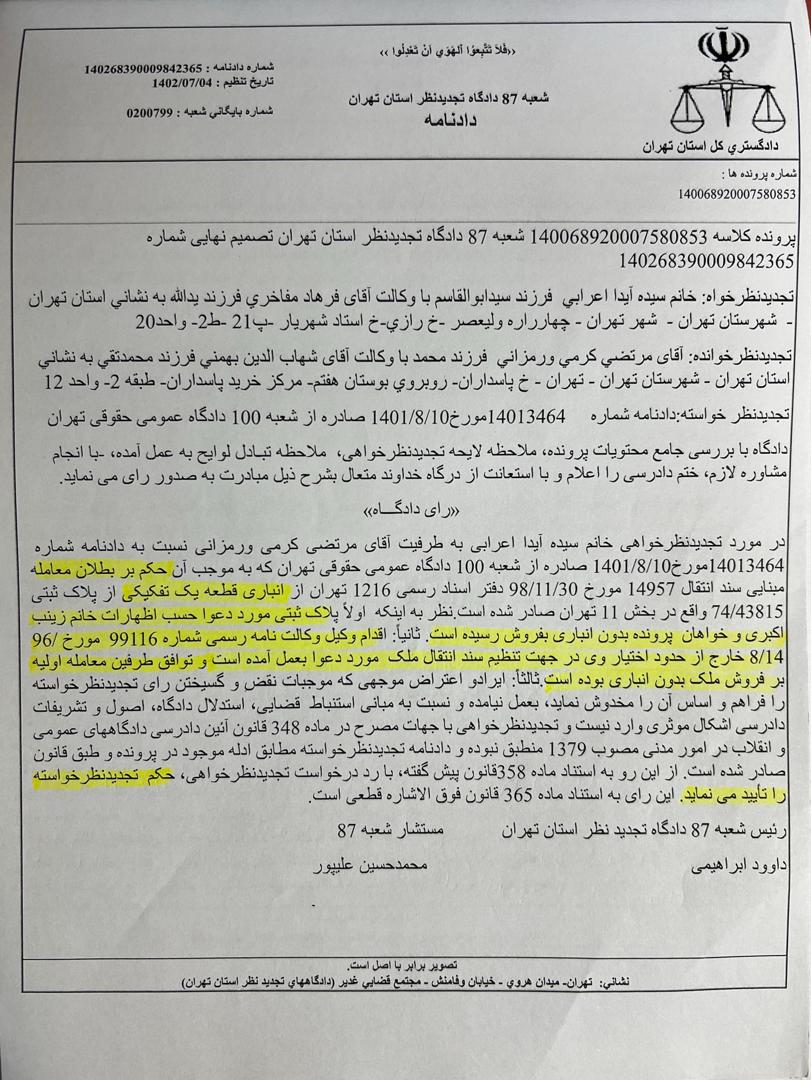 ‹‹فَلاَ تَتَّبِعوُا اَلهَوَي اَنْ تَعْدِلُوا ››
شماره دادنامه : 140268390009842365
تاریخ تنظیم : 1402/07/04
شماره بایگاني شعبه : 0200799
شعبه 87 دادگاه تجدیدنظر استان تهران
دادنامه
دادگستري کل استان تهران
شماره پرونده ها :
140068920007580853
پرونده کلاسه 140068920007580853 شعبه 87 دادگاه تجدیدنظر استان تهران تصمیم نهایی شماره
140268390009842365
تجدیدنظرخواه: خانم سیده آیدا اعرابي فرزند سیدابوالقاسم با وکالت آقای فرهاد مفاخري فرزند یدالله به نشاني استان تهران
- شهرستان تهران - شهر تهران - چهارراره ولیعصر -خ رازي-خ استاد شهریار -پ21 -ط2- واحد20
تجدیدنظرخوانده: آقای مرتضي کرمي ورمزاني فرزند محمد با وکالت آقای شهاب الدین بهمني فرزند محمدتقي به نشاني
استان تهران - شهرستان تهران - تهران - خ پاسداران- روبروي بوستان هفتم- مرکز خرید پاسداران- طبقه 2- واحد 12
تجدیدنظر خواسته:دادنامه شماره 14013464مورخ1401/8/10 صادره از شعبه 100 دادگاه عمومی حقوقی تهران
دادگاه با بررسی جامع محتویات پرونده، ملاحظه لایحه تجدیدنظرخواهی، ملاحظه تبادل لوایح به عمل آمده، -با انجام
مشاوره لازم، ختم دادرسی را اعلام و با استعانت از درگاه خداوند متعال بشرح ذیل مبادرت به صدور رای می نماید.
«رای دادگـــاه»
در مورد تجدیدنظرخواهی خانم سیده آیدا اعرابی به طرفیت آقای مرتضی کرمی ورمزانی نسبت به دادنامه شماره
14013464مورخ1401/8/10 صادره از شعبه 100 دادگاه عمومی حقوقی تهران که به موجب آن حکم بر بطلان معامله
مبنایی سند انتقال 14957 مورخ 98/11/30 دفتر اسناد رسمی 1216 تهران از انباری قطعه یک تفکیکی از پلاک ثبتی
74/43815 واقع در بخش 11 تهران صادر شده است.نظر به اینکه اولاً پلاک ثبتی مورد دعوا حسب اظهارات خانم زینب
اکبری و خواهان پرونده بدون انباری بفروش رسیده است. ثانیاً: اقدام وکیل وکالت نامه رسمی شماره 99116 مورخ 96/
8/14 خارج از حدود اختیار وی در جهت تنظیم سند انتقال ملک مورد دعوا بعمل آمده است و توافق طرفین معامله اولیه
بر فروش ملک بدون انباری بوده است.ثالثاً: ایرادو اعتراض موجهی که موجبات نقض و گسیختن رای تجدیدنظرخواسته
را فراهم و اساس آن را مخدوش نماید، بعمل نیامده و نسبت به مبانی استنباط قضایی، استدلال دادگاه، اصول و تشریفات
دادرسی اشکال موثری وارد نیست و تجدیدنظرخواهی با جهات مصرح در ماده 348 قانون آئین دادرسی دادگاههای عمومی
و انقلاب در امور مدنی مصوب 1379 منطبق نبوده و دادنامه تجدیدنظرخواسته مطابق ادله موجود در پرونده و طبق قانون
صادر شده است. از این رو به استناد ماده 358قانون پیش گفته، با رد درخواست تجدیدنظرخواهی، حکم تجدیدنظرخواسته
را تأیید می نماید. این رای به استناد ماده 365 قانون فوق الاشاره قطعی است.
رئیس شعبه 87 دادگاه تجدید نظر استان تهران مستشار شعبه 87
داوود ابراهیمی محمدحسین علیپور
تصویر برابر با اصل است.
نشاني: تهران- میدان هروي - خیابان وفامنش - مجتمع قضایي غدیر (دادگاههاي تجدید نظر استان تهران)